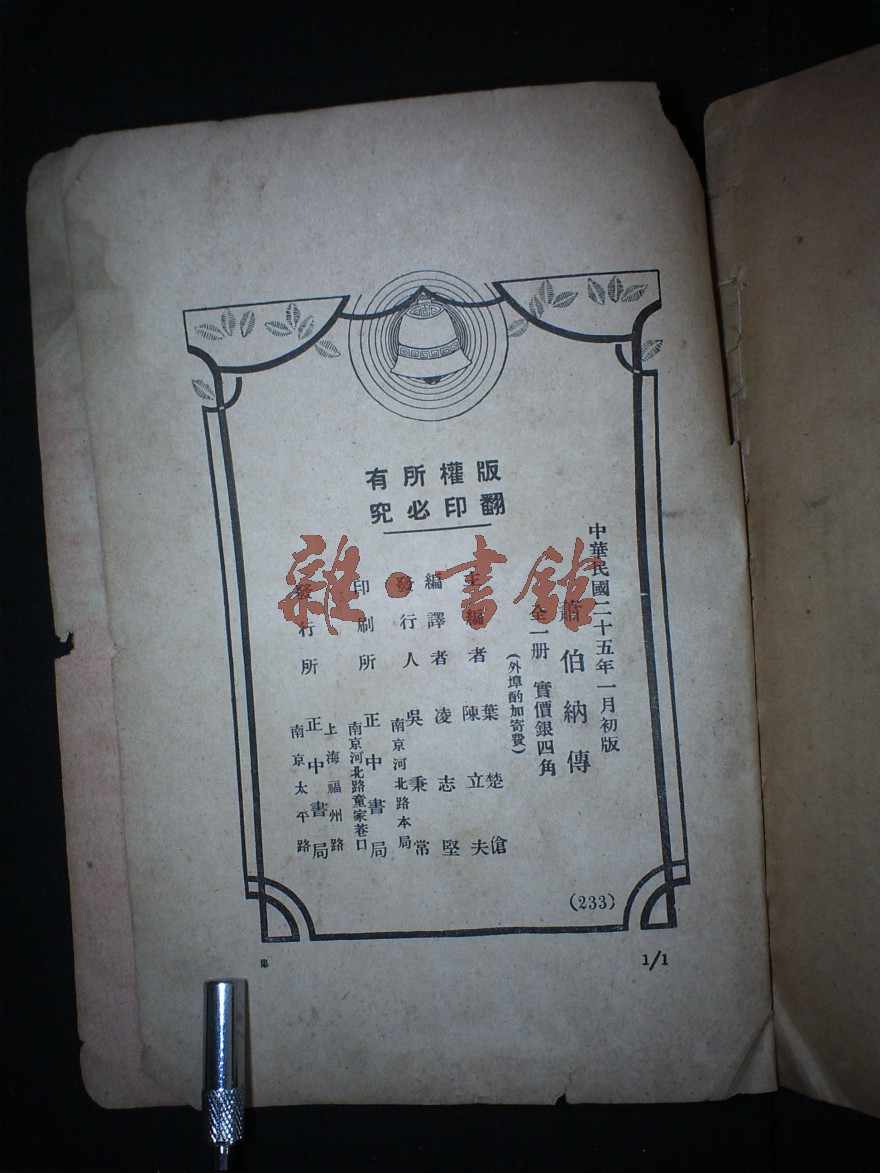 版權所有
翻印必究
中華民國二十五年一月初版
蕭伯納傳
全一册 實價銀四角
(外埠酌加寄費)
主編者 葉楚傖
陳立夫
編譯者 凌志堅
發行人 吳秉常
南京河北路本局
印刷所 正中書局
南京河北路童家巷口
發行所 正中書局
上海福州路
南京太平路
(233)
1/1
雜·書館